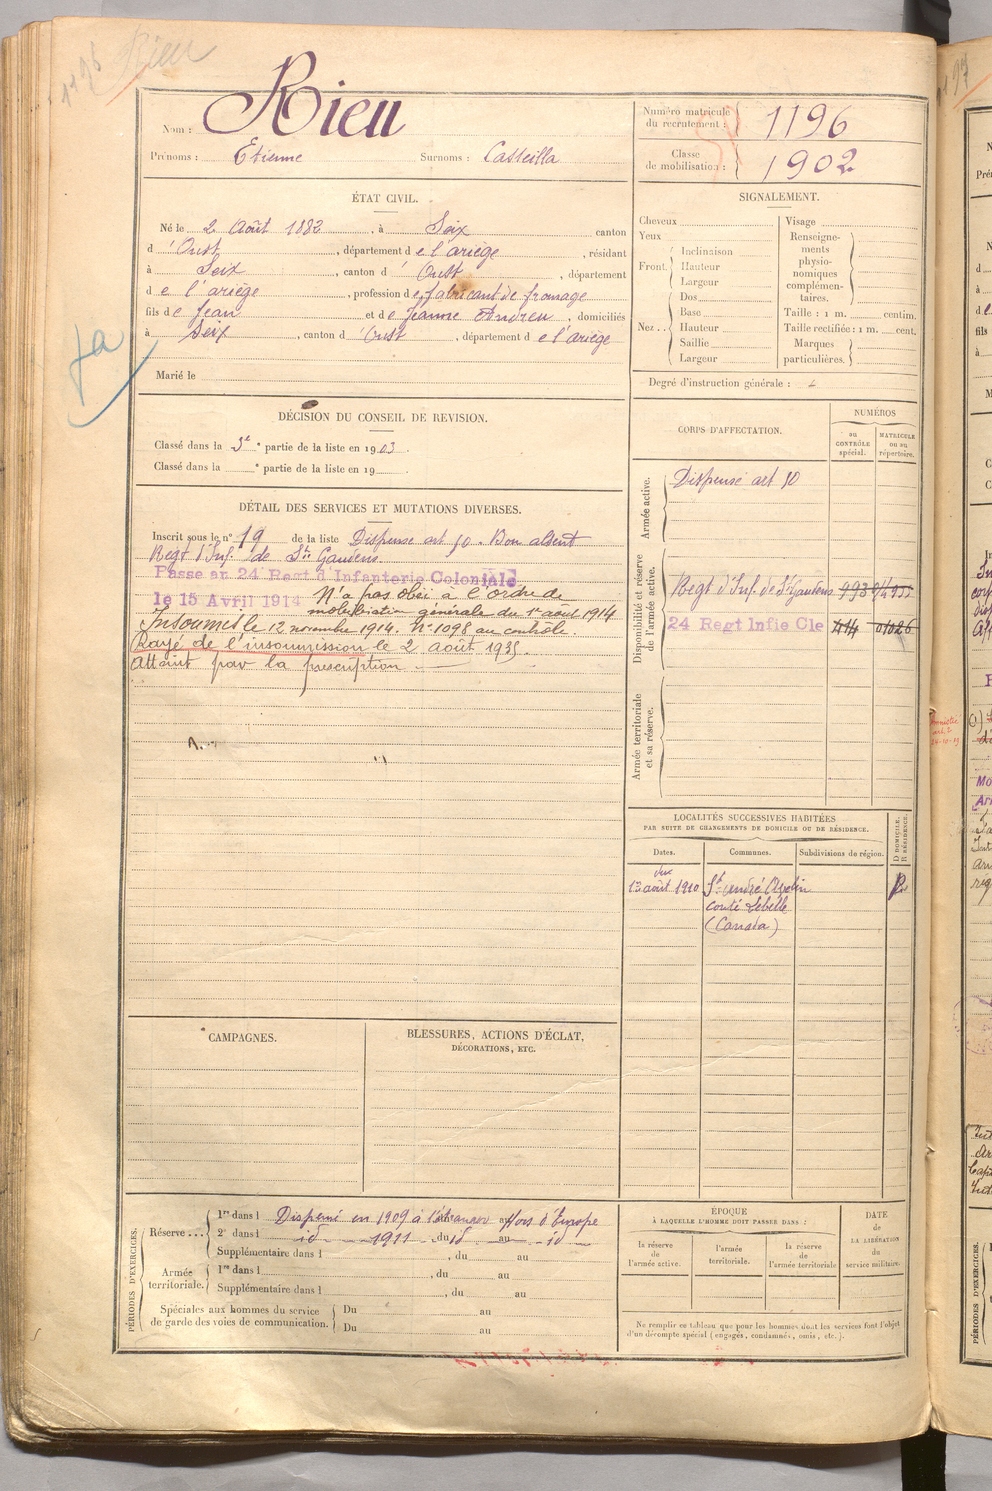 1196 Rieu
Nom : Rieu
Prénoms : Étienne Surnoms : Casteilla
Numéro matricule du recrutement : 1196
Classe de mobilisation : 1902
ÉTAT CIVIL.
Né le 2 Août 1882, à Seix canton
d'Oust, département de l'ariège, résidant
à Seix, canton d'Oust, département
de l'ariège, profession de fabricant de fromage
fils de Jean et de Jeanne Andreu, domiciliés
à Seix, canton d'Oust, département de l'ariège
Marié le
SIGNALEMENT.
Cheveux
Yeux
Front. Inclinaison
Hauteur
Largeur
Nez . . Dos
Base
Hauteur
Saillie
Largeur
Visage
Renseignements physionomiques complémentaires.
Taille : 1 m. centim.
Taille rectifiée : 1 m. cent.
Marques particulières.
Degré d'instruction générale :
DÉCISION DU CONSEIL DE REVISION.
Classé dans la 3e partie de la liste en 1903.
Classé dans la e partie de la liste en 19
DÉTAIL DES SERVICES ET MUTATIONS DIVERSES.
Inscrit sous le n° 19 de la liste Dispensé art 50. Bon absent
Regt d'Inf. de St Gaudens.
Passe au 24 Regt d'Infanterie Coloniale
le 15 Avril 1914 N'a pas obéi à l'ordre de
mobilisation générale du 1er août 1914
Insoumis le 12 novembre 1914. N° 1098 au contrôle
Rayé de l'insoumission le 2 août 1935.
Atteint par la prescription.
CORPS D'AFFECTATION.
NUMÉROS
au CONTRÔLE spécial.
MATRICULE ou au répertoire.
Armée active.
Dispensé art 50
Disponibilité et réserve de l'armée active.
Regt d'Inf. de St Gaudens 993
24 Regt Infie Cle 414 01026
Armée territoriale et sa réserve.
LOCALITÉS SUCCESSIVES HABITÉES
PAR SUITE DE CHANGEMENTS DE DOMICILE OU DE RÉSIDENCE.
Dates.
Communes.
Subdivisions de région.
D DOMICILE. R RÉSIDENCE.
13 août 1910 St André Avelin R
conté Labelle
(Canada)
CAMPAGNES.
BLESSURES, ACTIONS D'ÉCLAT,
DÉCORATIONS, ETC.
PÉRIODES D'EXERCICES.
Réserve . . . 1re dans l Dispensé en 1909 à l'étranger Hors d'Europe
2e dans l id 1911 du id au id
Supplémentaire dans l , du au
Armée territoriale. 1re dans l , du au
Supplémentaire dans l , du au
Spéciales aux hommes du service de garde des voies de communication. Du au
Du au
ÉPOQUE
À LAQUELLE L'HOMME DOIT PASSER DANS :
la réserve de l'armée active.
l'armée territoriale.
la réserve de l'armée territoriale
DATE de LA LIBÉRATION du service militaire.
Ne remplir ce tableau que pour les hommes dont les services font l'objet
d'un décompte spécial (engagés, condamnés, omis, etc.).